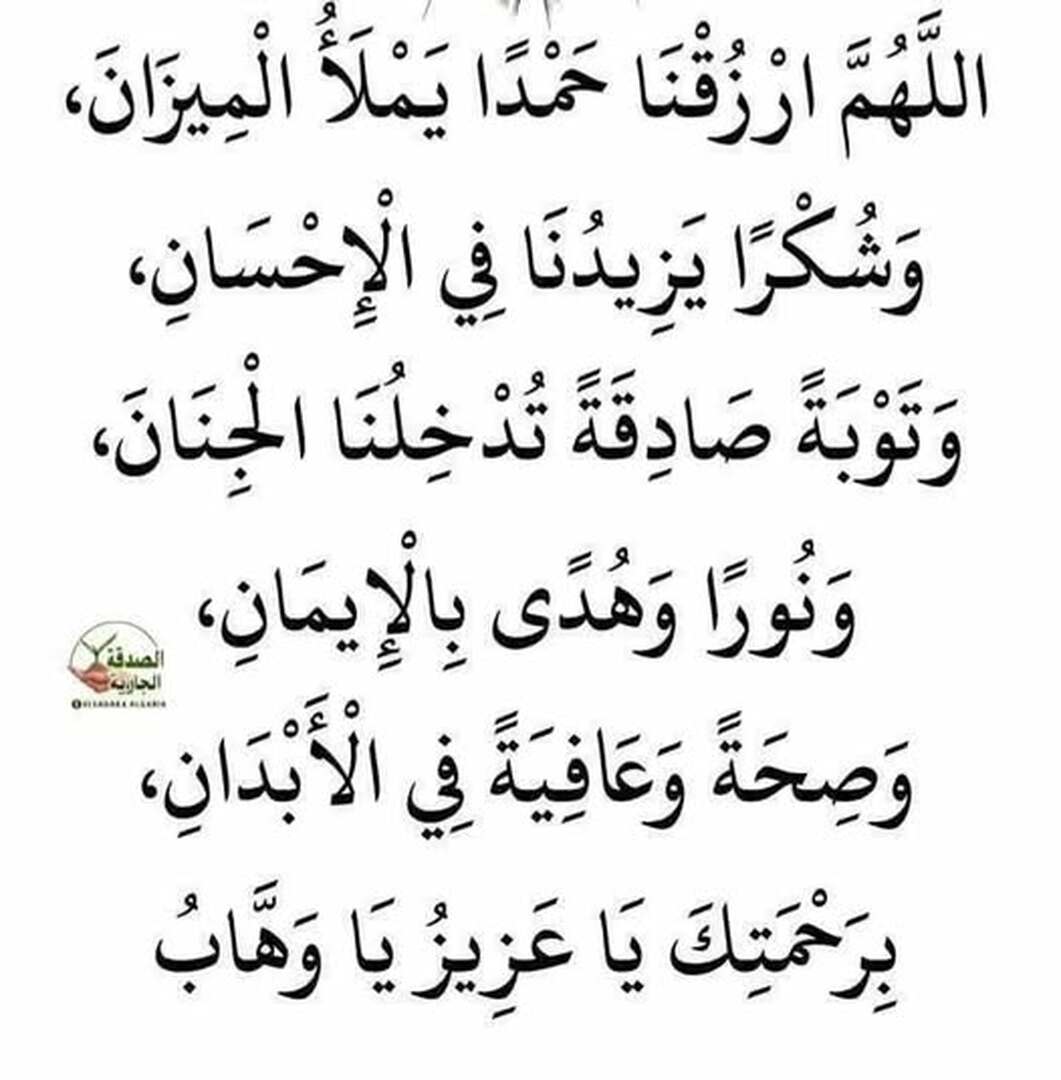 اللَّهُمَّ ارْزُقْنَا حَمْدًا يَمْلَأُ الْمِيزَانَ،
وَشُكْرًا يَزِيدُنَا فِي الْإِحْسَانِ،
وَتَوْبَةً صَادِقَةً تُدْخِلُنَا الْجِنَانَ،
وَنُورًا وَهُدًى بِالْإِيمَانِ،
الصدقة
الجارية
وَصِحَةً وَعَافِيَةً فِي الْأَبْدَانِ،
بِرَحْمَتِكَ يَا عَزِيزُ يَا وَهَّابُ